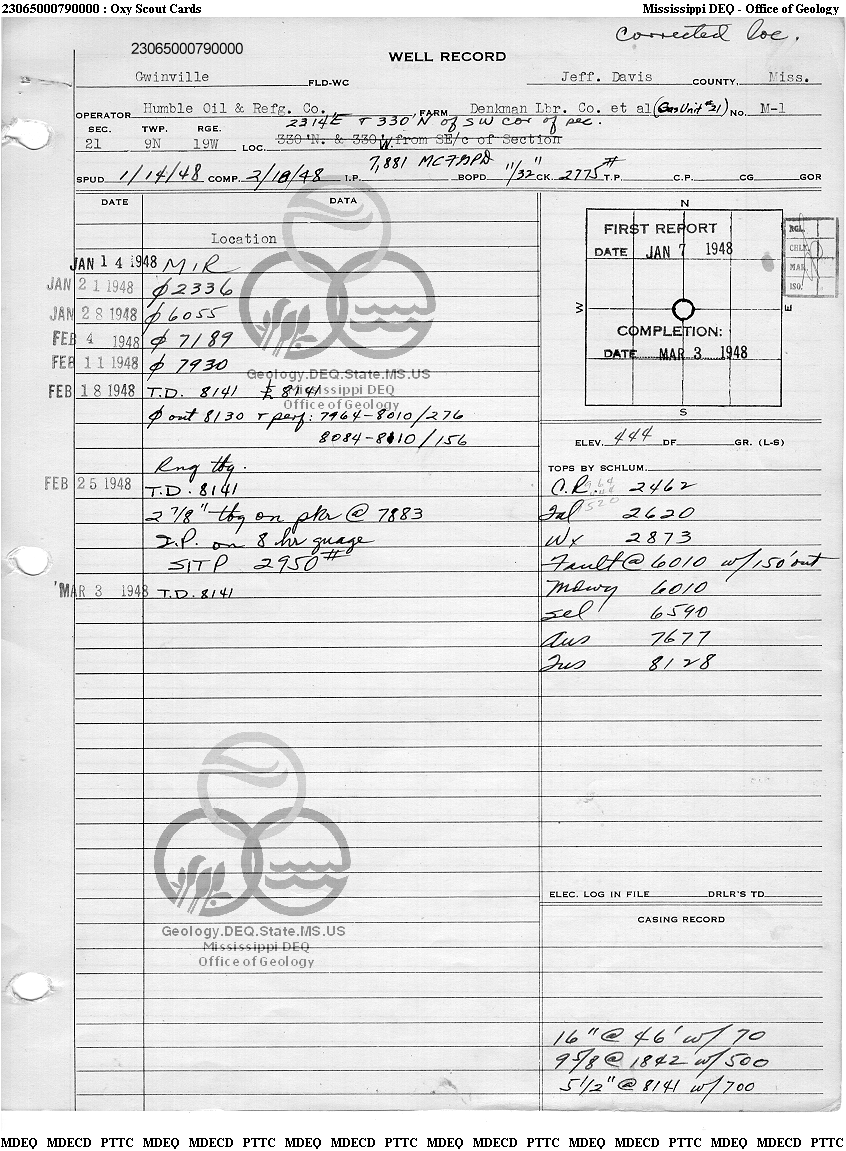 23065000790000 : Oxy Scout Cards Mississippi DEQ - Office of Geology
Corrected loc.
23065000790000
WELL RECORD
Gwinville FLD-WC Jeff. Davis COUNTY, Miss.
OPERATOR Humble Oil & Refg. Co. FARM Denkman Lbr. Co. et al (Gas Unit #21) No. M-1
2314'E & 330'N of SW cor of sec.
SEC. TWP. RGE.
21 9N 19W LOC. 330'N. & 330'W. from SE/c of Section
7,881 MCFGPD
SPUD 1/14/48 COMP. 2/18/48 I.P. BOPD 11/32" CK. 2775# T.P. C.P. CG GOR
DATE DATA
Location
JAN 14 1948 MIR
JAN 21 1948 ϕ 2336
JAN 28 1948 ϕ 6055
FEB 4 1948 ϕ 7189
FEB 11 1948 ϕ 7930
FEB 18 1948 T.D. 8141 8141
ϕ out 8130 & perf: 7964-8010/276
8084-8110/156
Rng tbg.
FEB 25 1948 T.D. 8141
2 7/8" tbg on pkr @ 7883
I.P. on 8 hr guage
SITP 2950#
MAR 3 1948 T.D. 8141
N
FIRST REPORT
DATE JAN 7 1948
W E
COMPLETION:
DATE MAR 3 1948
S
RGL.
CHLK.
MAP.
ISO.
ELEV. 444 DF. GR. (L-S)
TOPS BY SCHLUM.
C.R. 2462
Gal 2620
Wx 2873
Fault @ 6010 w/150' out
Mdwy 6010
Sel 6590
Aus 7677
Tus 8128
ELEC. LOG IN FILE DRLR'S TD
CASING RECORD
16" @ 46' w/70
9 5/8 @ 1842 w/500
5 1/2" @ 8141 w/700
Geology.DEQ.State.MS.US
Mississippi DEQ
Office of Geology
Geology.DEQ.State.MS.US
Mississippi DEQ
Office of Geology
MDEQ MDECD PTTC MDEQ MDECD PTTC MDEQ MDECD PTTC MDEQ MDECD PTTC MDEQ MDECD PTTC MDEQ MDECD PTTC